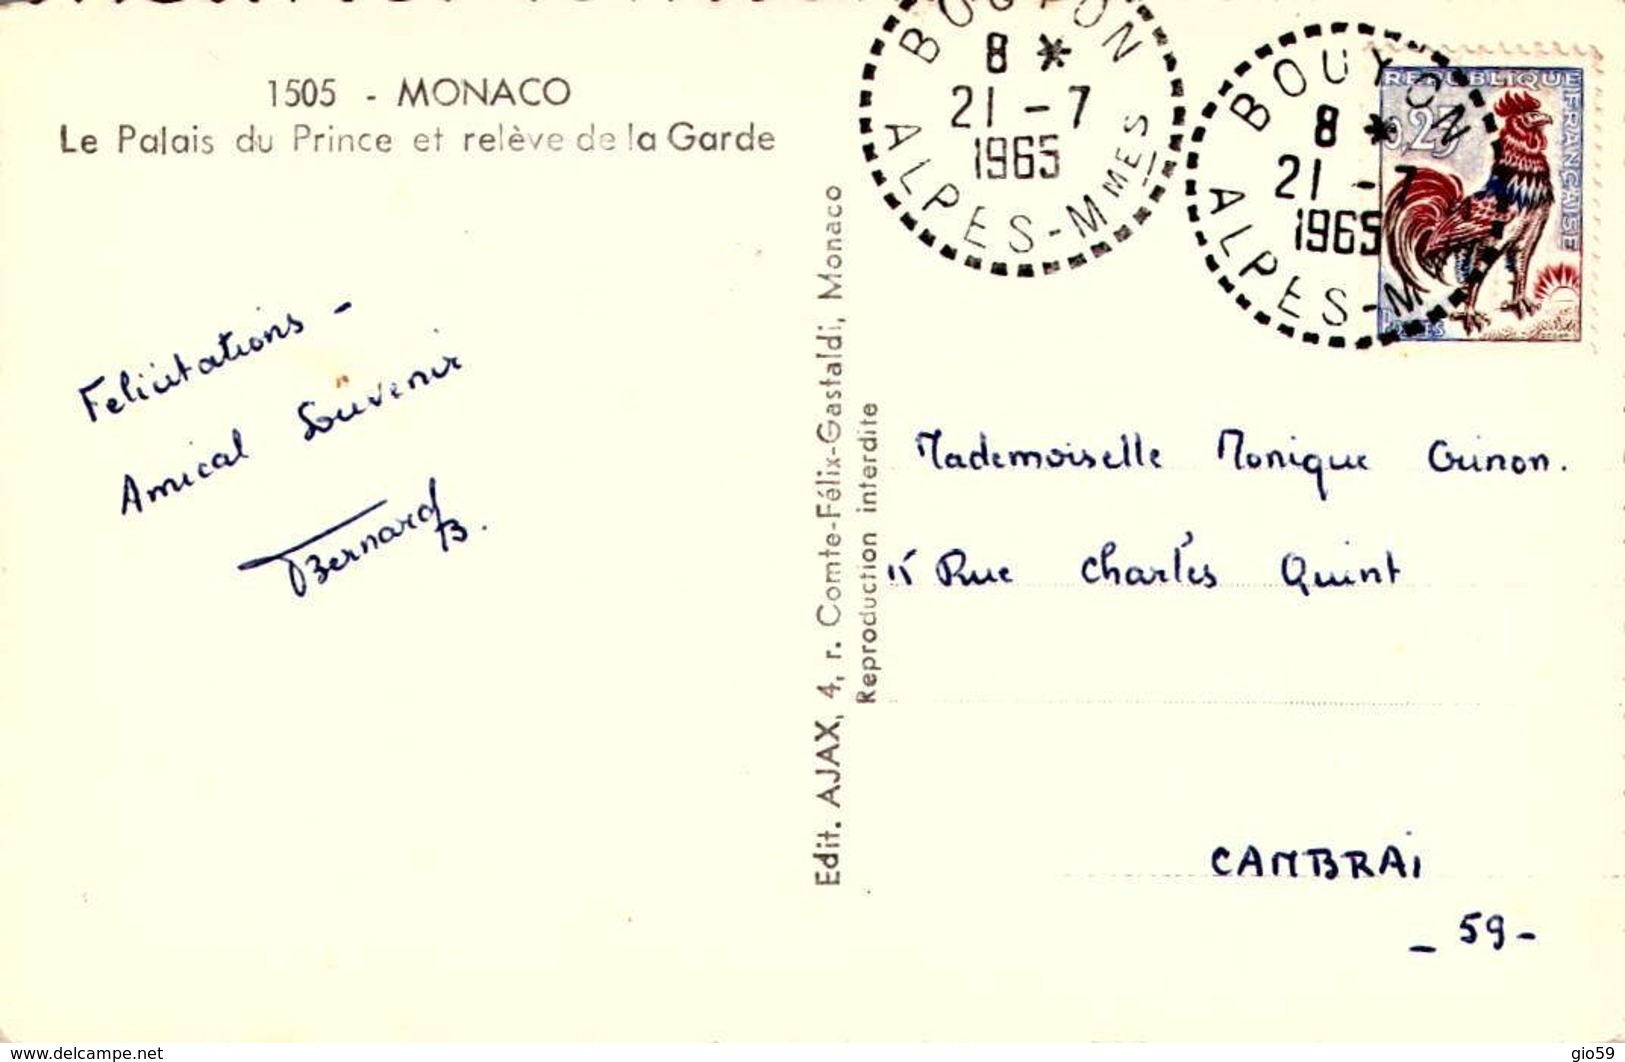 1505 - MONACO
Le Palais du Prince et relève de la Garde
Felicitations -
Amical Souvenir
Bernard B.
Edit. AJAX, 4, r. Comte-Félix-Gastaldi, Monaco
Reproduction interdite
BOUYON
8 *
21 - 7
1965
ALPES-MMES
BOUYON
8 *
21 - 7
1965
ALPES-M
REPUBLIQUE FRANÇAISE
0,25
POSTES
Mademoiselle Monique
15 Rue Charles Quint
CAMBRAI
- 59 -
www.delcampe.net
gio59